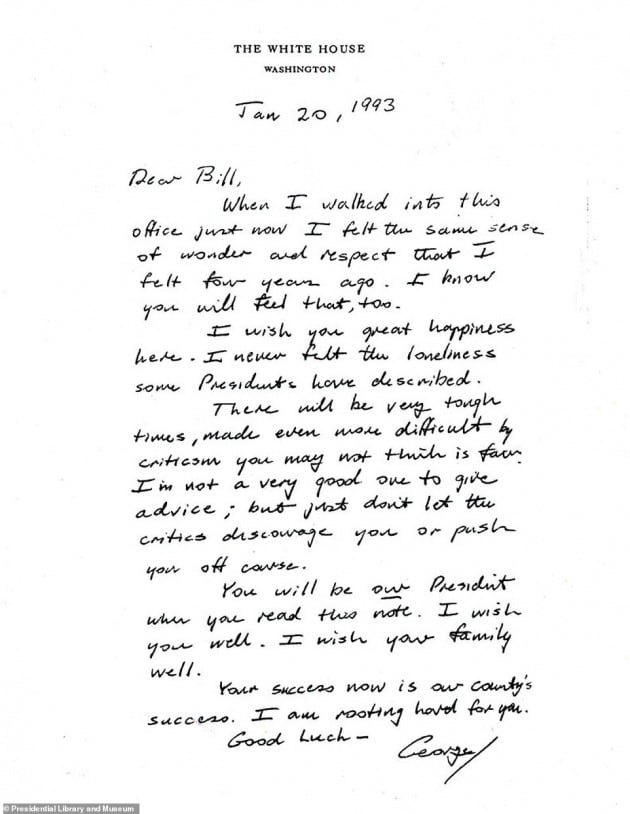 THE WHITE HOUSE
WASHINGTON
Jan 20, 1993
Dear Bill,
When I walked into this
office just now I felt the same sense
of wonder and respect that I
felt four years ago. I know
you will feel that, too.
I wish you great happiness
here. I never felt the loneliness
some Presidents have described.
There will be very tough
times, made even more difficult by
criticism you may not think is fair.
I'm not a very good one to give
advice; but just don't let the
critics discourage you or push
you off course.
You will be our President
when you read this note. I wish
you well. I wish your family
well.
Your success now is our country's
success. I am rooting hard for you.
Good Luck - George
© Presidential Library and Museum